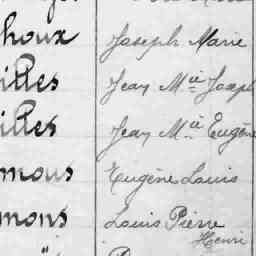 houx Joseph Marie
ittes Jean Mie Joseph
illes Jean Mie Eugène
mous Eugène Louis
mons Louis Pierre
Henri